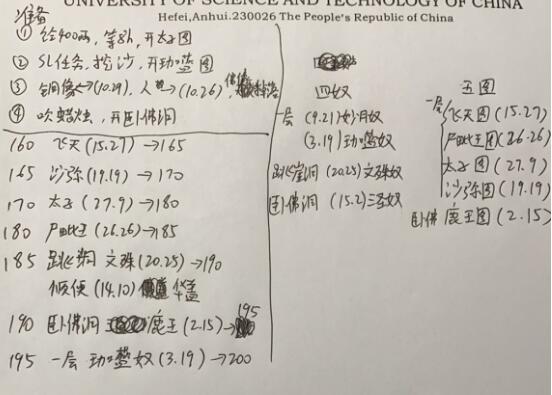 UNIVERSITY OF SCIENCE AND TECHNOLOGY OF CHINA
Hefei,Anhui.230026 The People's Republic of China
准备
① 给400两, 等8h, 开太子图
② SL任务, 挖沙, 开劫盗图
③ 铜像→(10.29), 人→(10.26)
④ 吹蜡烛, 开卧佛洞
160 飞天(15.27)→165
165 沙弥(19.19)→170
170 太子(27.9)→180
180 尸毗王(26.26)→185
185 跳崖洞 文殊(20.25)→190
倾便(14.10) 华盖
190 卧佛洞 鹿王(2.15)→195
195 一层 劫盗奴(3.19)→200
四奴
一层 (9.21)妙月奴
(3.19)劫盗奴
跳崖洞(20.25)文殊奴
卧佛洞(15.2)三圣奴
五图
一层 飞天图(15.27)
尸毗王图(26.26)
太子图(27.9)
沙弥图(19.19)
卧佛 鹿王图(2.15)